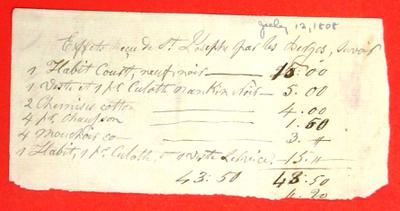 July 12, 1808
Effets reçu de St. Joseph par les Berges, Savoir
1 Habit Court, neuf, noir — 15.00
1 Veste et 1 pr. Culott nankin noir — 5.00
2 Chemises cotton 4.00
4 pr. Chausson 1.50
4 mouchoirs co — 3."
1 Habit, 1 pr. Culott, & Veste 15."
43.50 43.50
4.20